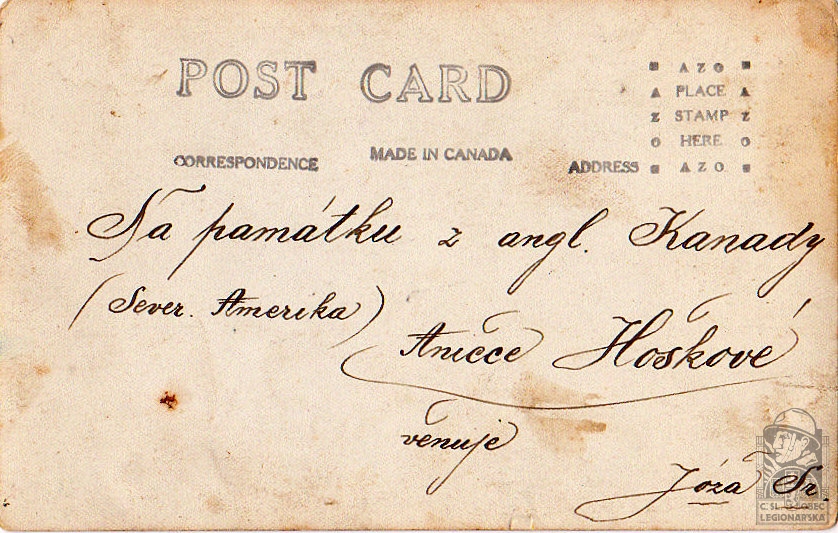 POST CARD
AZO
PLACE
STAMP
HERE
AZO
CORRESPONDENCE
MADE IN CANADA
ADDRESS
Na památku z angl. Kanady
(Sever. Amerika)
Aničce Hoškové
věnuje
Józa Sr.
Č.SL. OBEC
LEGIONÁŘSKÁ